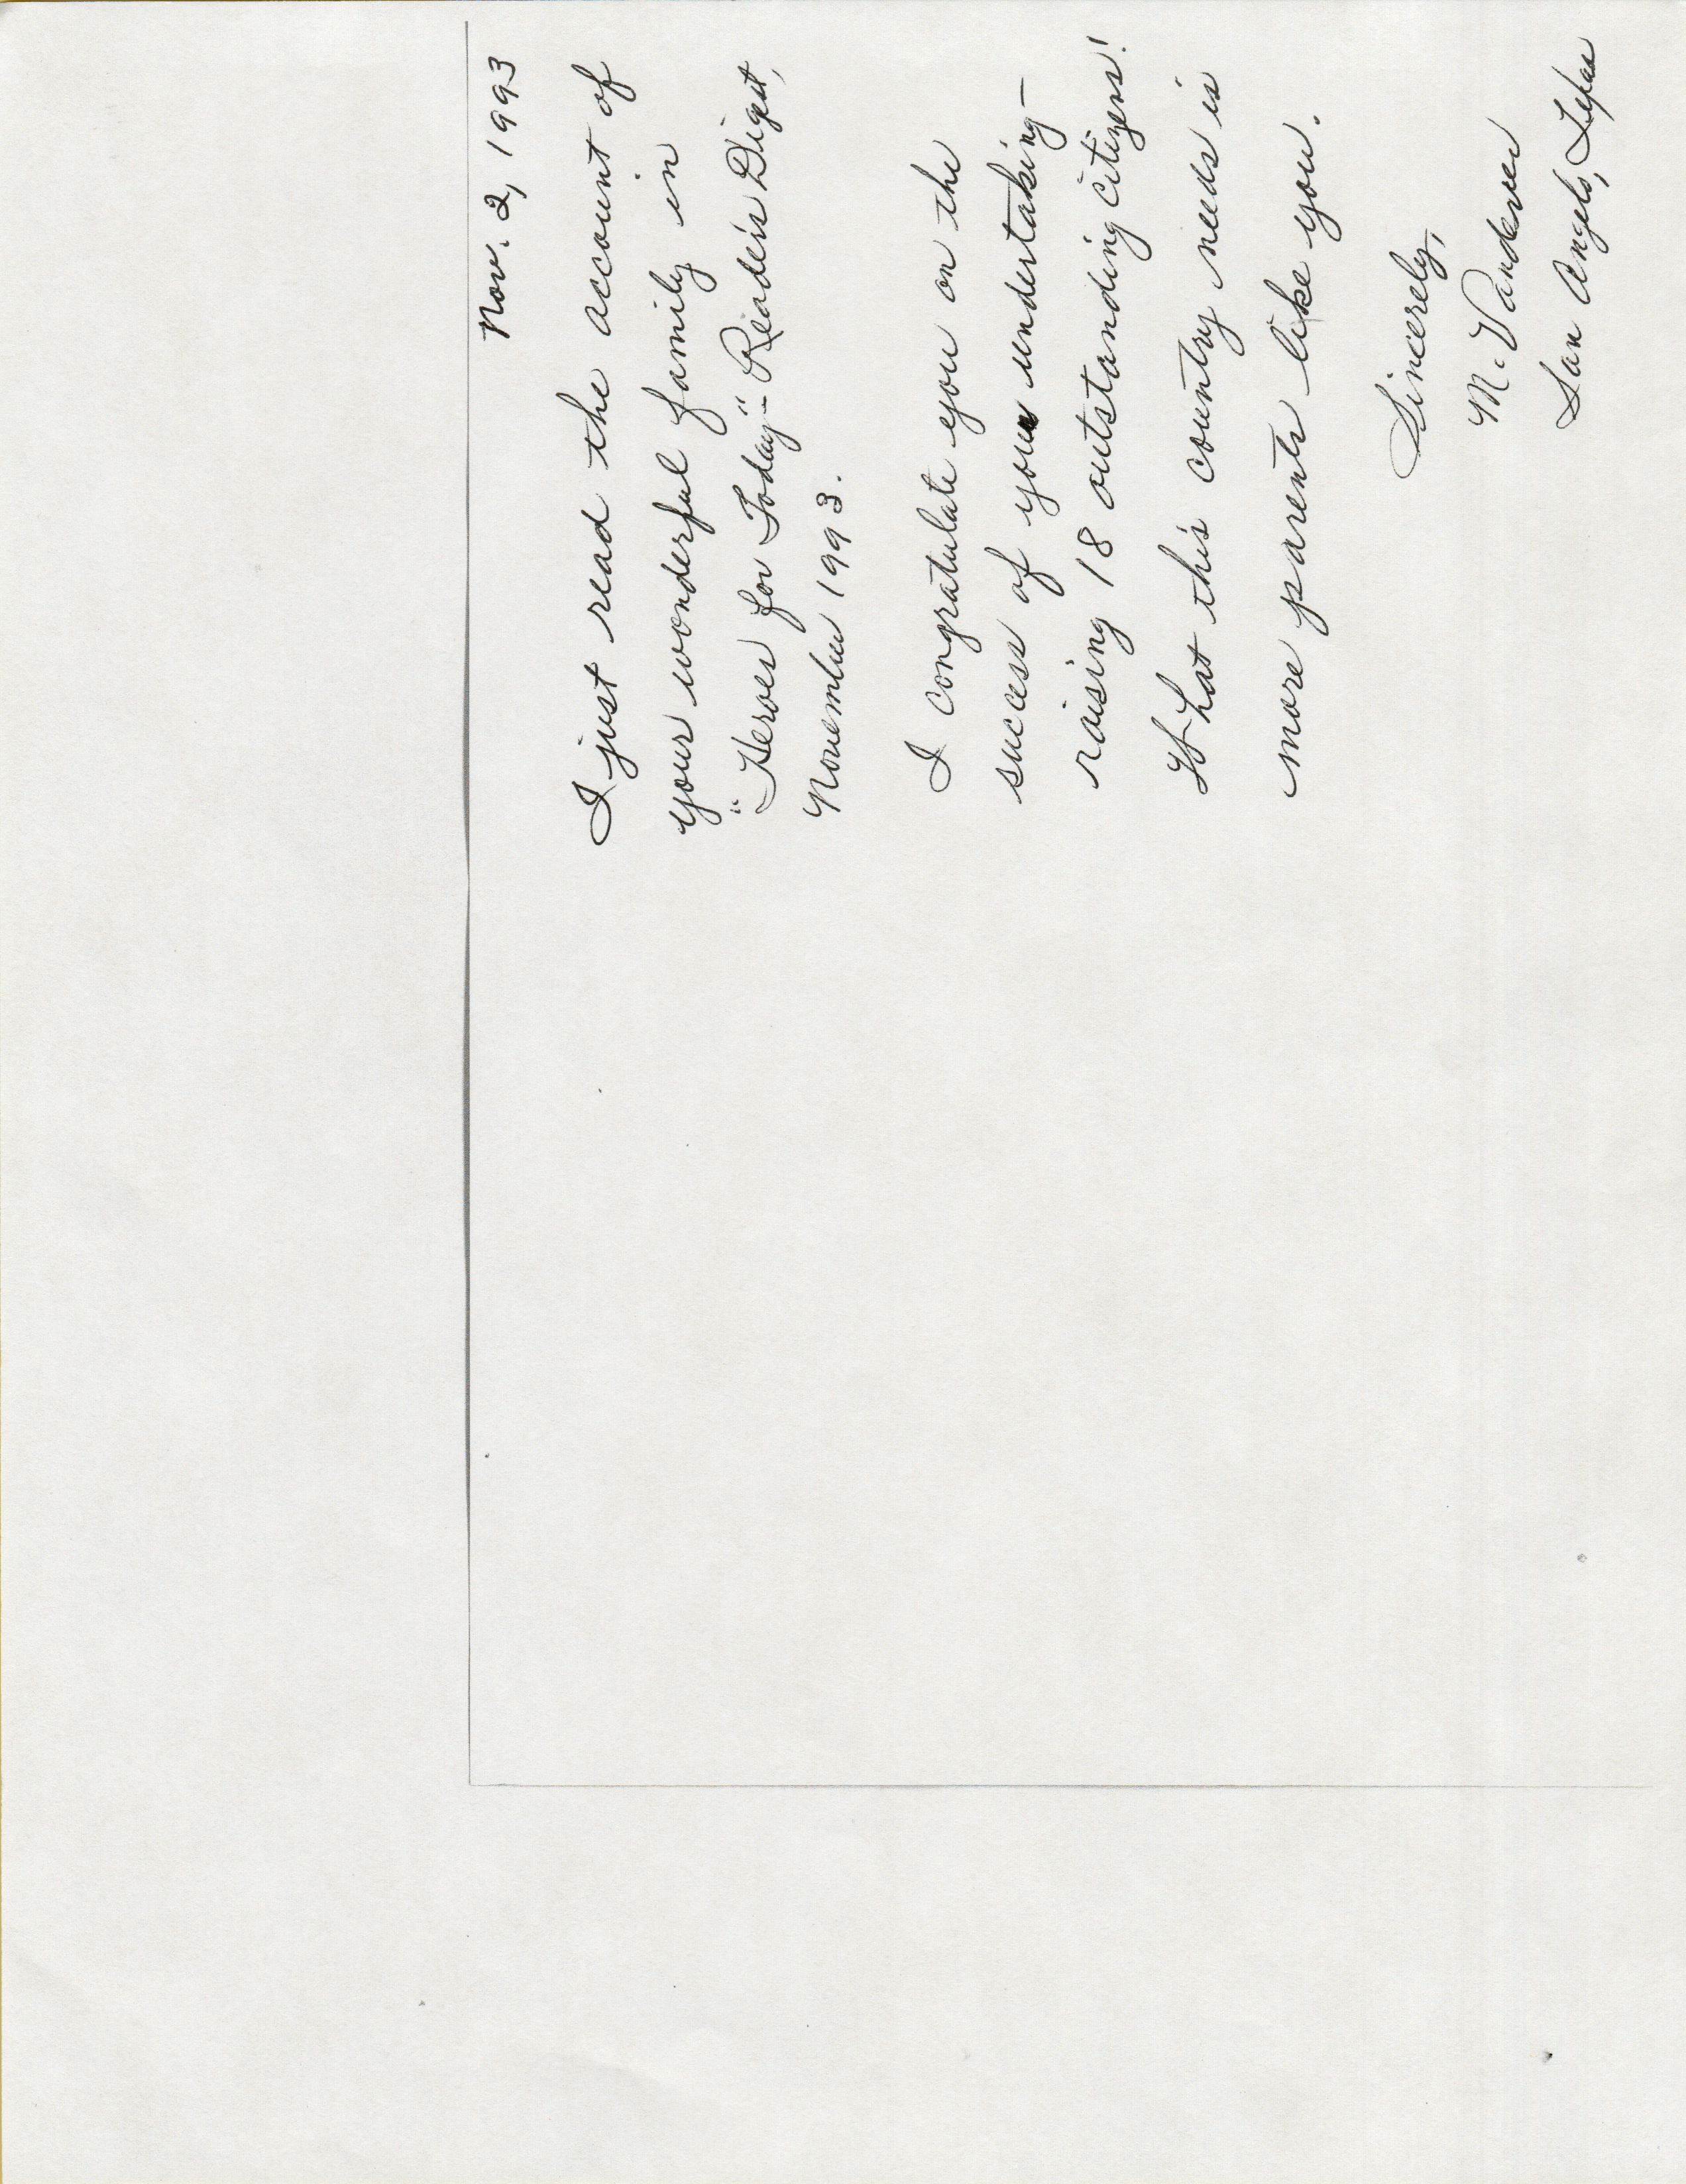 Nov. 2, 1993
I just read the account of
your wonderful family in
"Heroes for Today"- Reader's Digest,
November 1993.
I congratulate you on the
success of your undertaking-
raising 18 outstanding citizens!
What this country needs is
more parents like you.
Sincerely,
M. Vandever
San Angelo, Texas